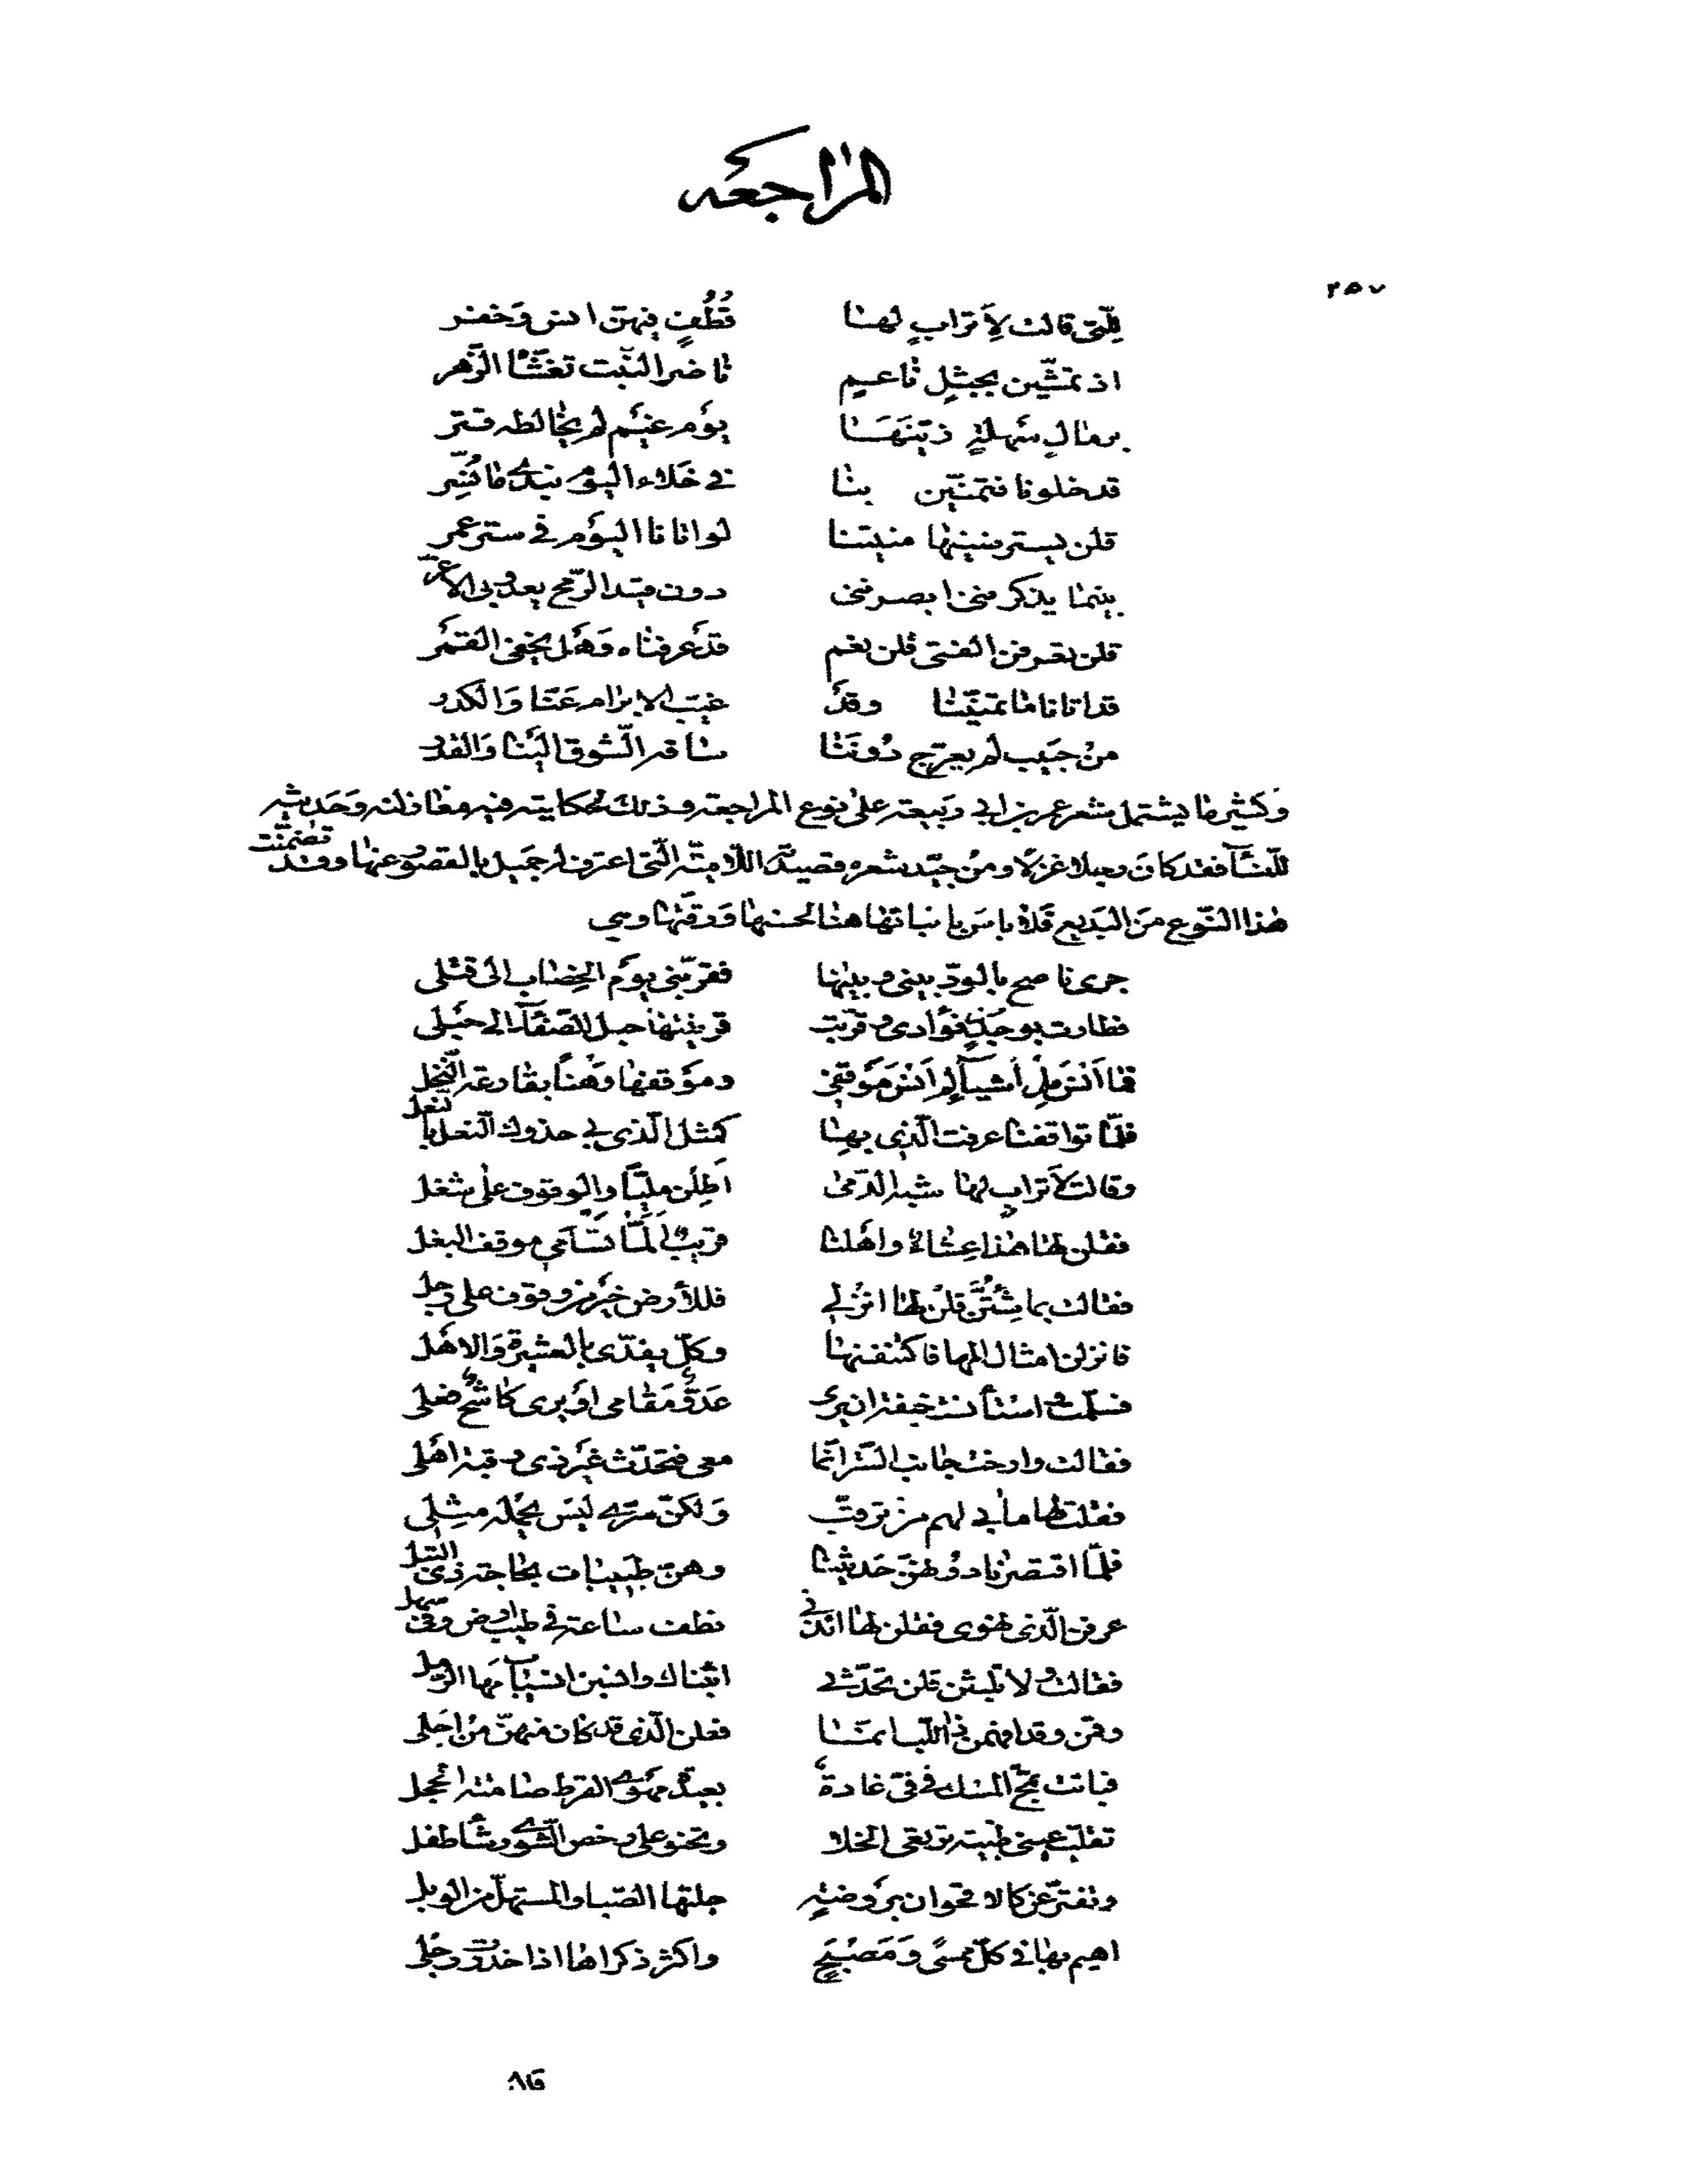 المراجعه
٢٥٧
للّتى قالت لِأَتراب لها قُطُفٍ فيهنّ انس وَخفر
اذ تمشّين بجبثلٍ ناعمٍ ناضر النّبت تغشّاه الزّهر
برمالٍ سَهلةٍ زيّنَهَا يوْم غيْم لم يخالطه قتر
قد خلونا فتمنّين بنا فى خَلاء اليوْم نبدى ما نُسِرّ
قلن يسترضينها منيتنا لو اتانا اليوْم فى ستر عمر
بينما يذكرننى ابصرننى دون قيد الرّمح يعدو بى الاغرّ
قلن تعرفن الفتى قلن نعم قدْ عرفناه وَهَل يخفى القَمَر
قد اتانا ما تمنّينا وقدْ غيّب الابرام عَنّا وَالكدر
منْ حَبيب لم يعرّج دُونَنا ساقه الشّوق اليْنا وَالقدر
وَكثير ما يشتمل شعر عمر بن ابى ربيعة على نوع المراجعة وذلك لحكايته فيه مغازلته وَحَديثه
للنّسآ فقد كان وجيلا غزلًا ومنْ جيّد شعره قصيدته اللّاميّة الّتى اعترف له جَميل بالقصور عنها وقد تضمّنت
هذا النّوع منَ البَديع فَلا باسَ باثباتها هنا لحسنها وَرقّتها وهى
جرى ناصح بالودّ بينى وبينها فقرّبنى يوْم الخِضاب الى قتلى
فطارت بوجدٍ فؤادى وقرّبت قرينتها حبل الصّفآ الى حبْلى
فما اَنْسَ ملْ اَشيآ لم اَنْسَ مَوْقفى ومَوْقفها وَهْنًا بقارعة النّخل
فلمّا تواقفنا عرفت الّذى بها كمثل الّذى بى حذوك النّعل بالنّعل
وقالت لأتراب لها شبه الدّمى اَطِلْن مليّا والوقوف على شغل
فقلن لها هذا عِشاءٌ واهْلنا قريبٌ المّا تسْآمى موقف البغل
فقالت بما شِئْتُنّ قلن لها انزلى فللأرض خيْر من وقوف على رحل
فانزلن امثال المها فاكتنفنها وكلّ يفدّى بالعشيرة وَالاهْل
فسلّمت واستأنست خيفة ان يرى عَدوّ مَقامى اوْ يرى كاشح فعلى
فقالت وارخت جانب السّتر انّما معى فتحدّث غيْر ذى رقبة اهْلى
فقلت لها ما بى لهم من ترقّب وَلكنّ سرّى ليْسَ يحْمله مثلِى
فلمّا اقتصرنا دونهنّ حَديثنا وهنّ طبيبات بحاجة ذى التّبل
عرفن الّذى تهوى فقلن لها ائذنى نطف ساعة فى طيب ارض وفى سهل
فقالت ولا تلبثن قلن تحدّثى اتيناك وانسبن انسيابَ مَها الرّمل
وقمن وقد افهمن ذا اللّب انّما فعلن الّذى قد كان منهنّ منْ اجَلى
فباتت تمجّ المسك فى فىّ غادةٌ بعيدة مهوى القرط صامتة الحجل
تقلّب عينى ظبية ترتعى الخلا وتحنو على رخص الشّوى رشأ طفل
وتفترّ عن كالاقحوان برَوضةٍ جلتها الصّبا والمستهلّ من الوبل
اهيم بها فى كلّ ممسًى وَمَصْبَحٍ واكثر ذكراها اذا خدرت رجلى